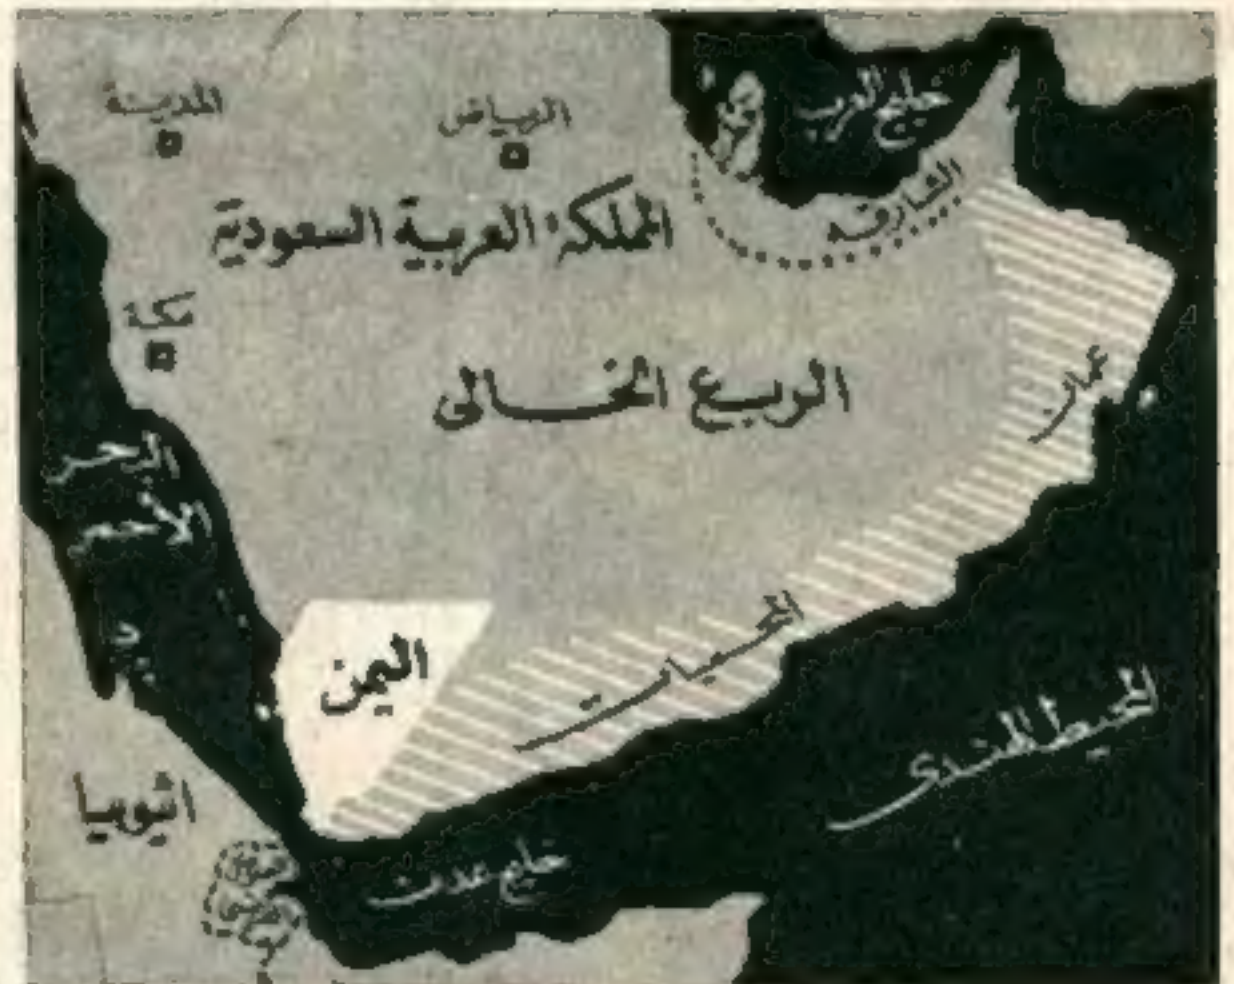 المدينة
الرياض
خليج العرب
الشارقه
المملكة العربية السعودية
مكة
الربع الخالى
عمان
البحر
الأحمر
المحميات
اليمن
المحيط الهندى
اثيوبيا
خليج عدن